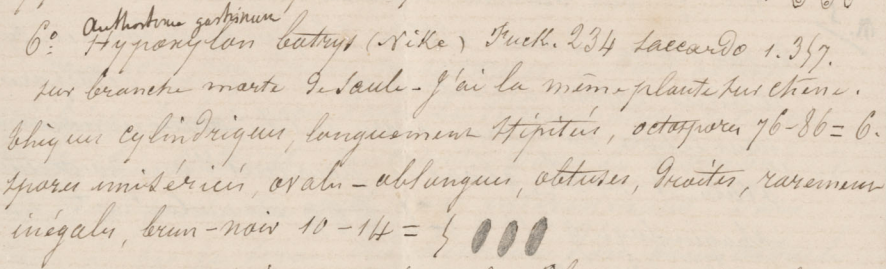 Anthostoma gastrinum
6º: Hypoxylon botrys (Nike) Fuck. 234 saccardo 1. 357.
sur branche morte de saule - J'ai la même plante sur chêne.
thèques cylindriques, longuement stipités, octospores 76-86 = 6.
spores unisériées, ovales - oblongues, obtuses, droites, rarement
inégales, brun-noir 10-14 = 5